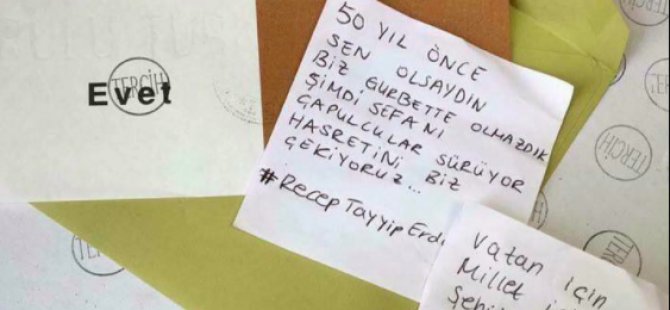 TERCİH
Evet
50 YIL ÖNCE
SEN OLSAYDIN
BİZ GURBETTE OLMAZDIK
ŞİMDİ SEFANI
ÇAPULCULAR SÜRÜYOR
HASRETİNİ BİZ
ÇEKİYORUZ...
#Recep Tayyip Erd
Vatan için
Millet
TERCİH
TERCİH
TERCİH
TERCİH